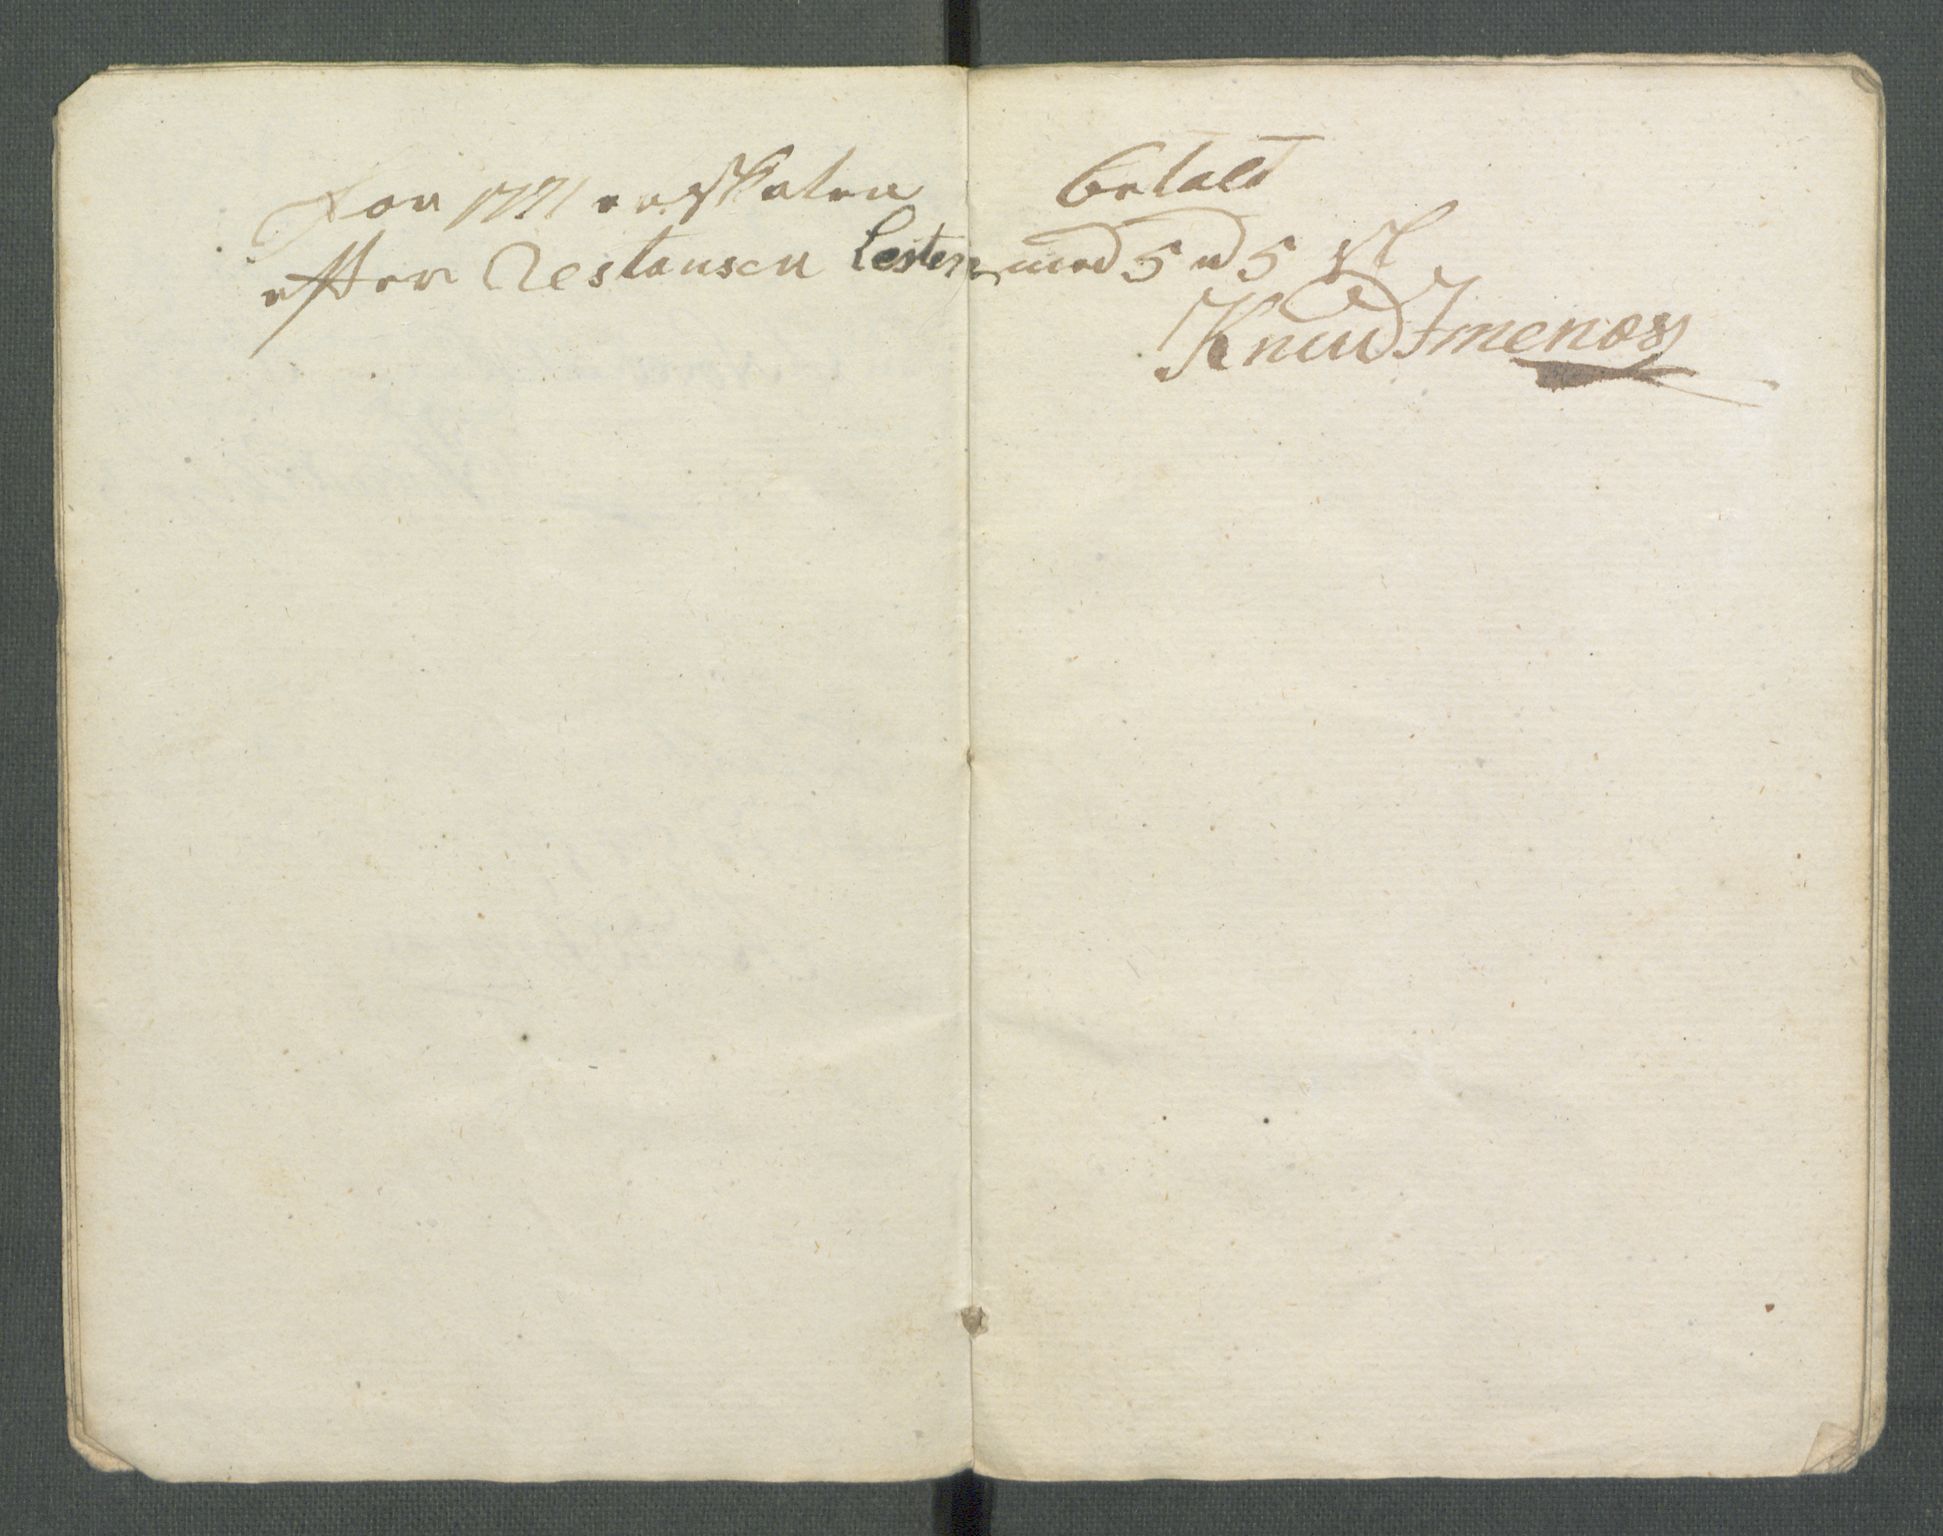 For 1771 er skaten betalt
efter Restansen Lesten med 5 d 5 sl
Knud Imenæs